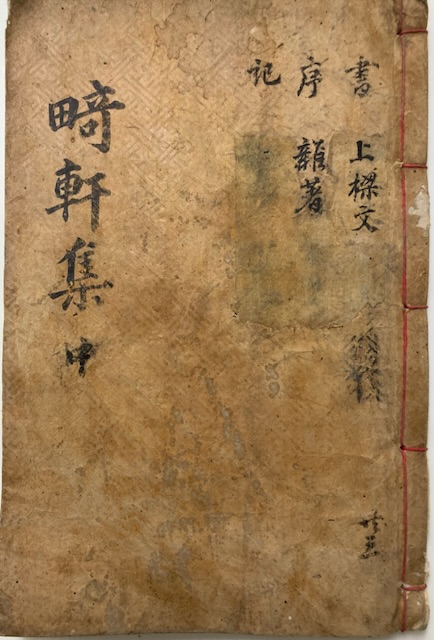 書 上樑文
序 雜著
記
畸軒集 中
共三